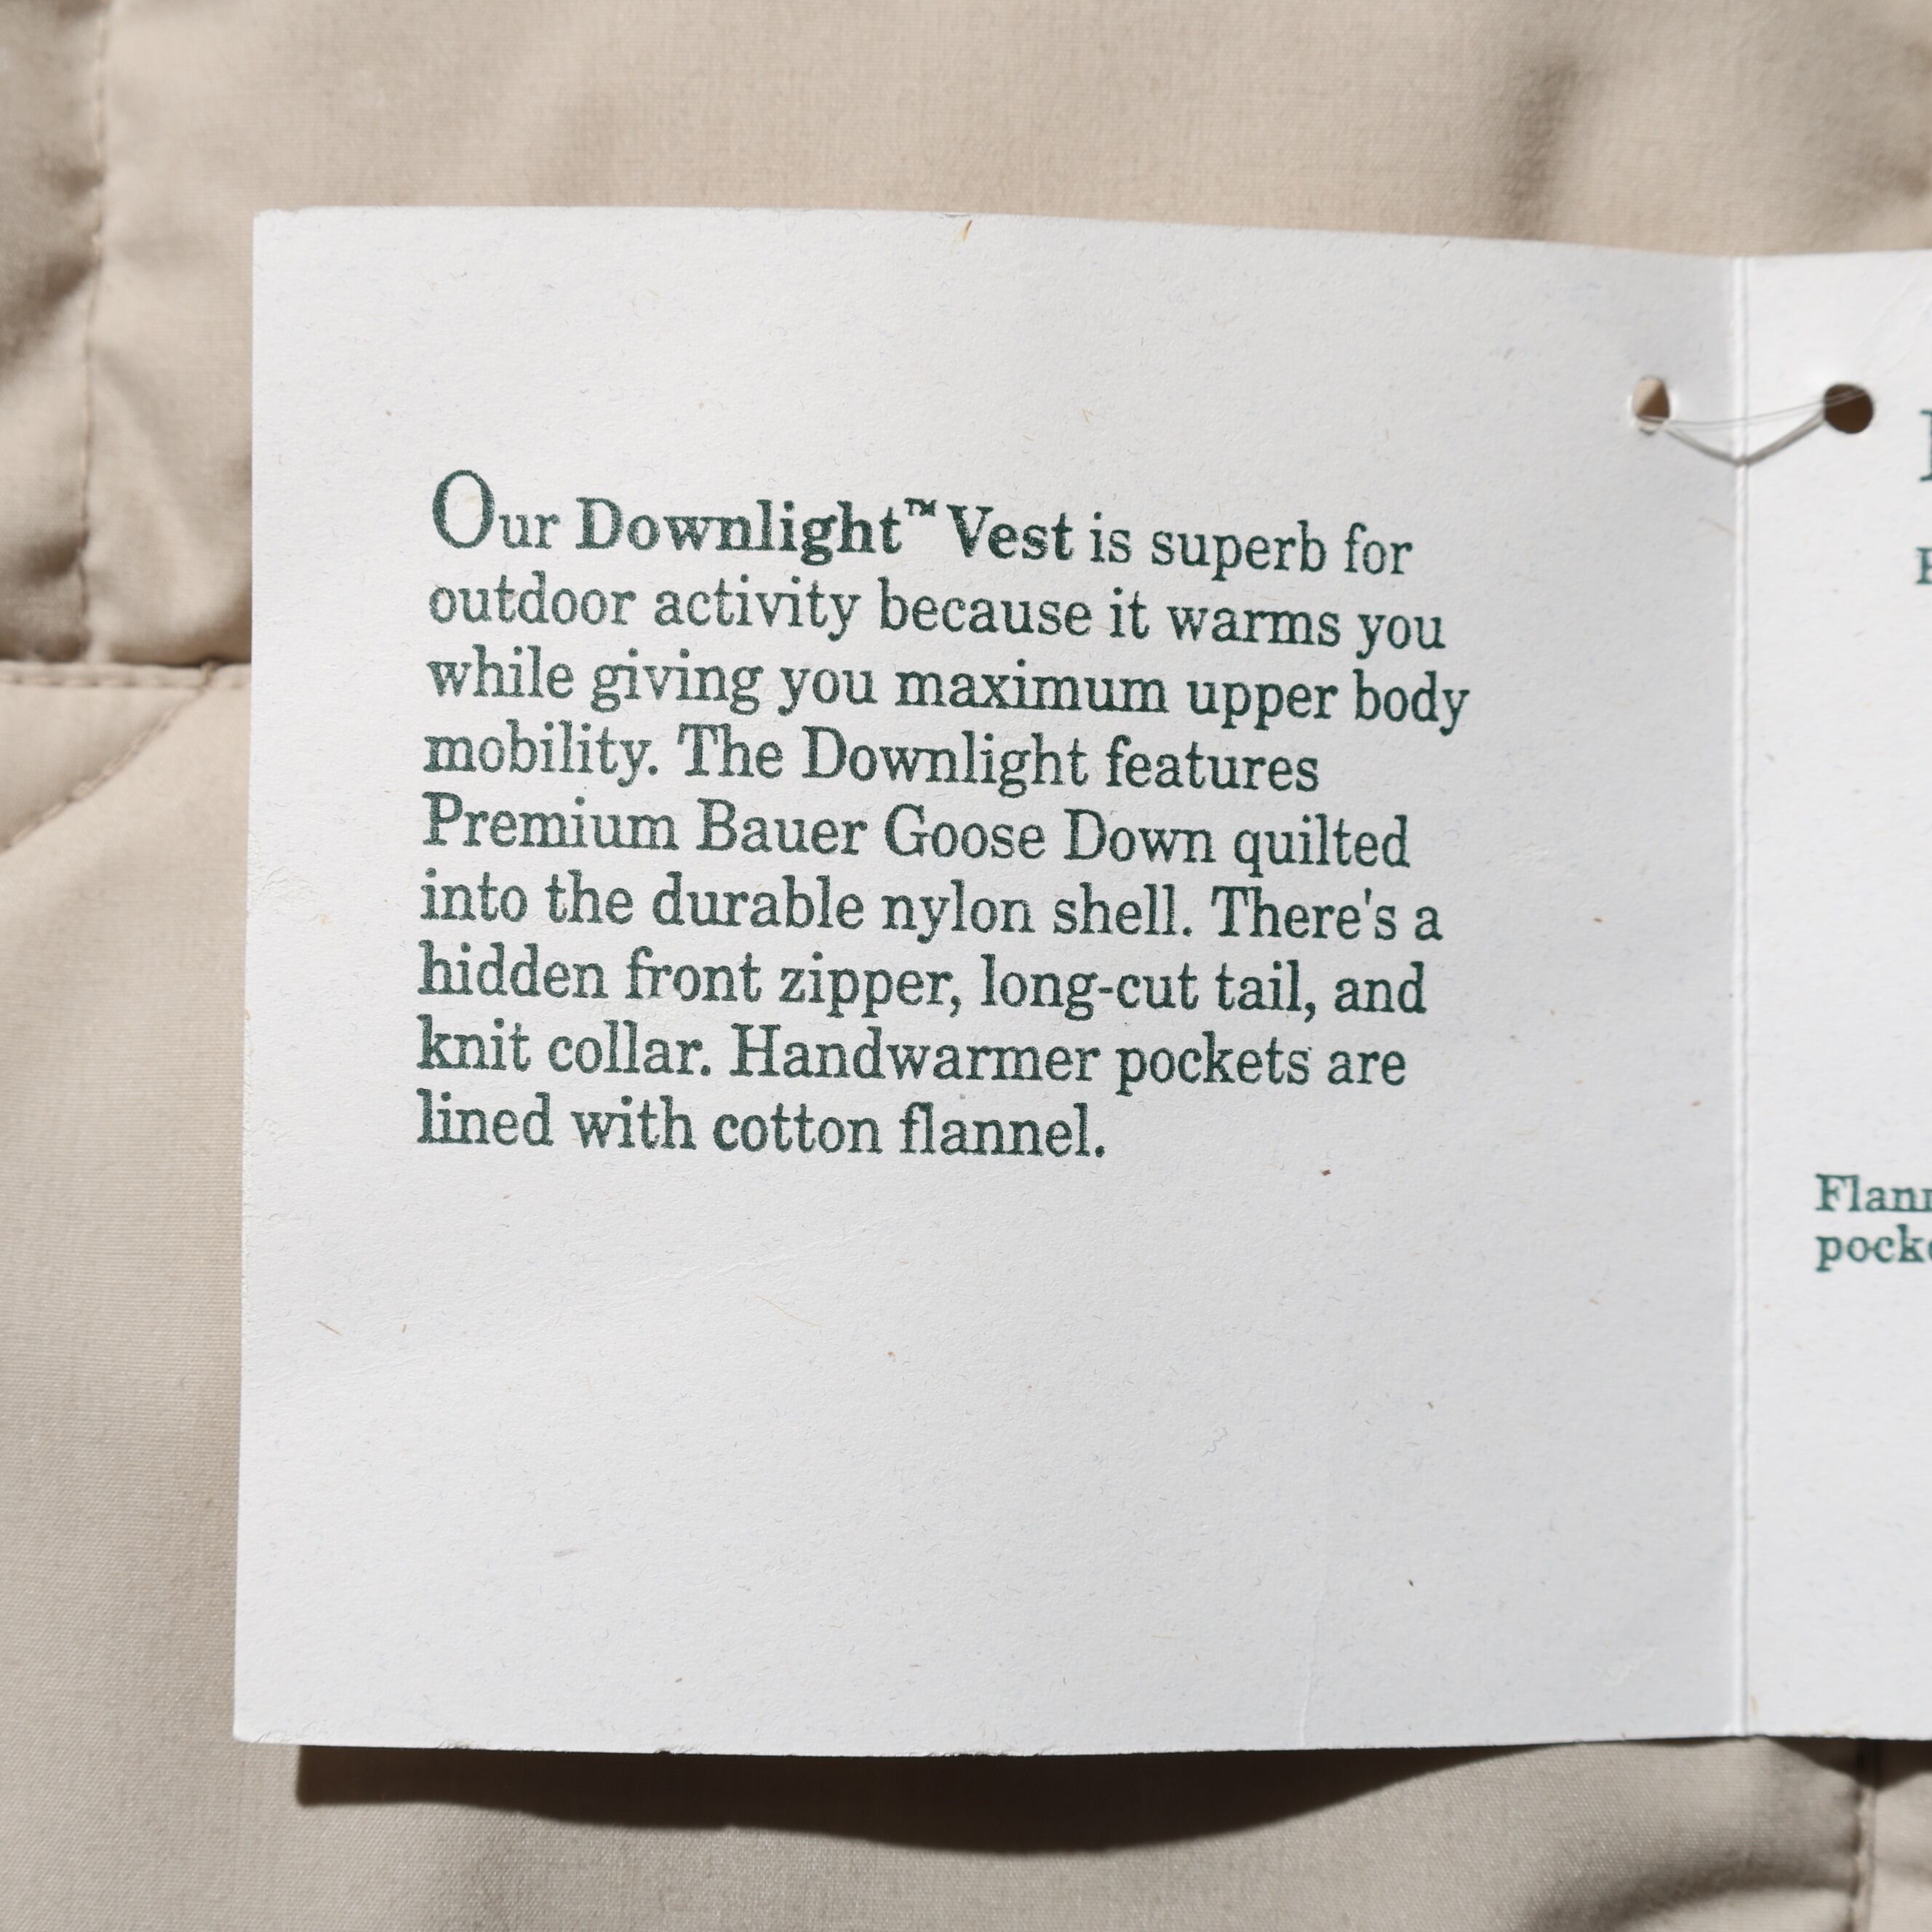 Our Downlight™ Vest is superb for
outdoor activity because it warms you
while giving you maximum upper body
mobility. The Downlight features
Premium Bauer Goose Down quilted
into the durable nylon shell. There's a
hidden front zipper, long-cut tail, and
knit collar. Handwarmer pockets are
lined with cotton flannel.